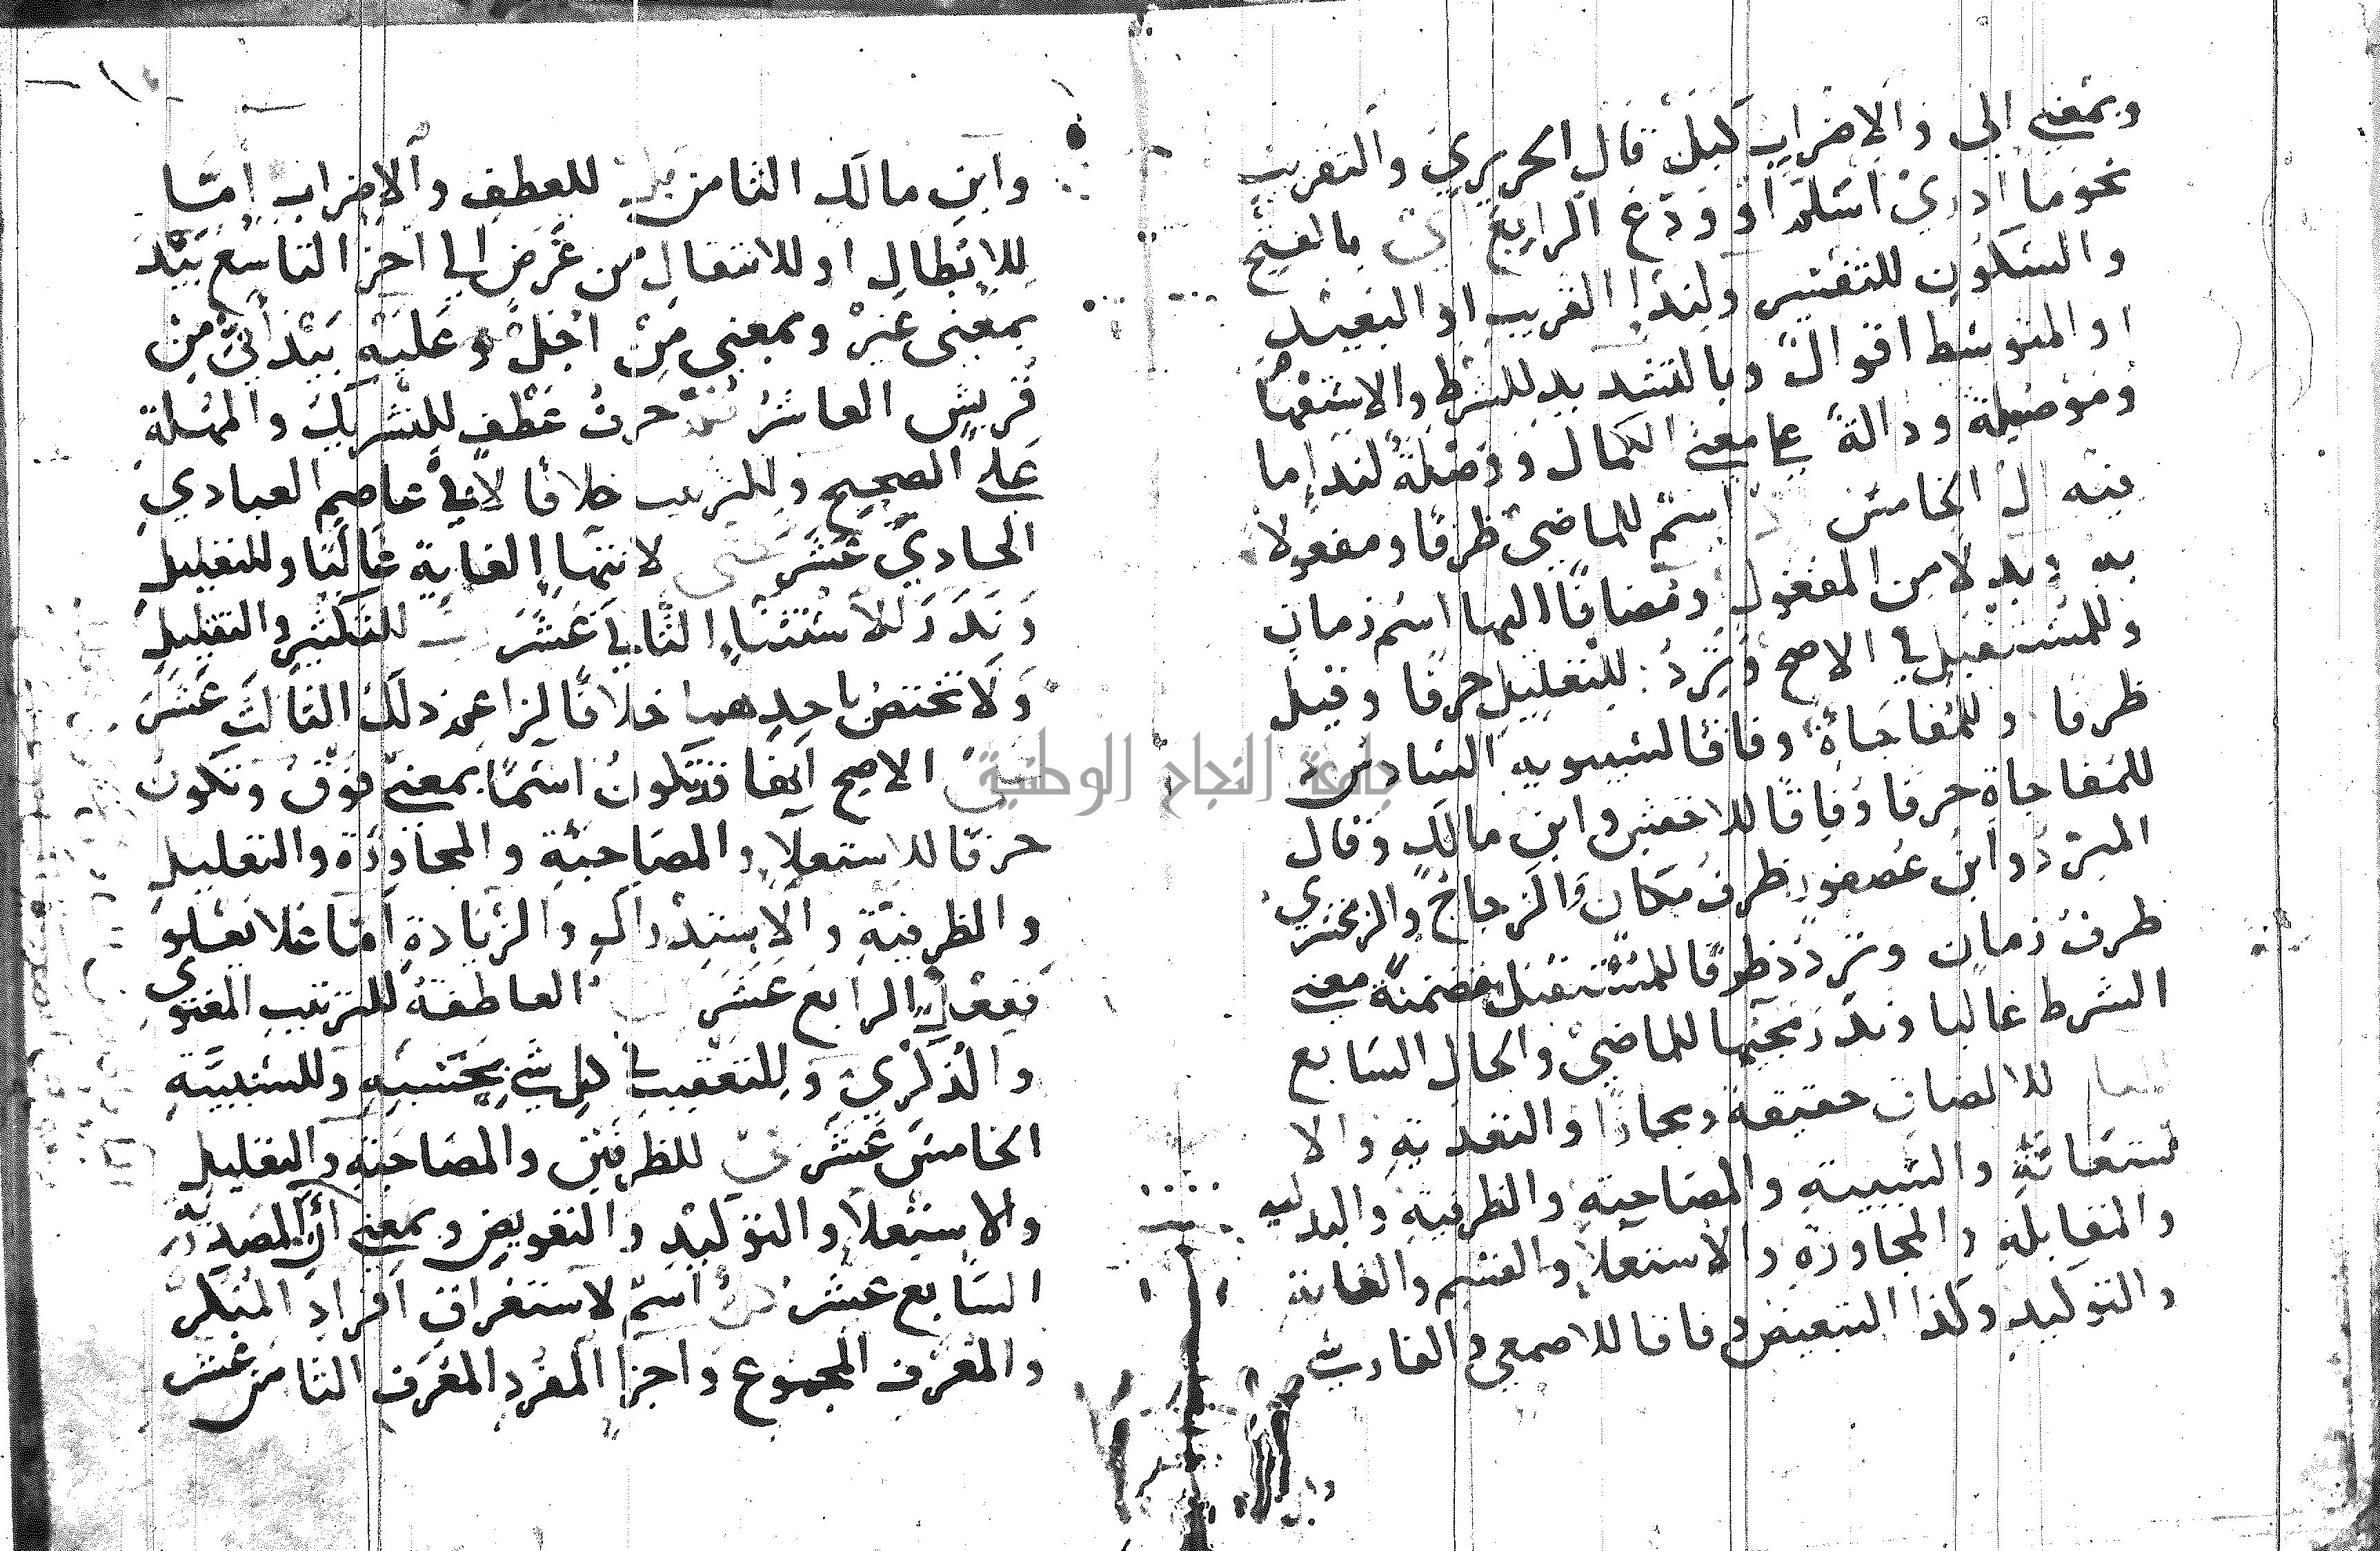 وبمعنى الى والاضراب كبل قال الحريري والتقريب
نحو ما ادري اسلم او ودع الرابع اي بالفتح
والسكون للتفسير ولندا القريب او البعيد
او المتوسط اقوال وبالتشديد للشرط والاستفها
وموصولة ودالة على معنى الكمال ووصلة لندا ما
فيه ال الخامس اذ اسم للماضي ظرفا ومفعولا
به وبدلا من المفعول ومضافا اليها اسم زمان
وللمستقبل في الاصح وترد للتعليل حرفا وقيل
ظرفا وللمفاجاة وفاقا لسيبويه السادس
للمفاجاة حرفا وفاقا للاخفش وابن مالك وقال
المبرد وابن عصفور ظرف مكان والزجاج والزمخشري
ظرف زمان وترد ظرفا للمستقبل مضمنة معنى
الشرط غالبا وندر مجيها للماضي والحال السابع
البا للالصاق حقيقة ومجازا والتعدية والا
ستعانة والسببية والمصاحبة والظرفية والبدلية
والمقابلة والمجاوزة والاستعلا والقسم والغاية
والتوكيد وكذا التبعيض وفاقا للاصمعي والفارسي
وابن مالك الثامن بل للعطف والاضراب امّا
للابطال او للانتقال من غرض الى اخر التاسع بيد
بمعنى غير وبمعنى من اجل وعليه بيد اني من
قريش العاشر ثم حرف عطف للتشريك والمهلة
على الصحيح وللترتيب خلافا لابي عاصم العبادي
الحادي عشر حتى لانتهاء الغاية غالبا وللتعليل
وندر للاستثناء الثاني عشر رب للتكثير والتقليل
ولا تختص باحدهما خلافا لزاعم ذلك الثالث عشر
على الاصح انها قد تكون اسما بمعنى فوق وتكون
حرفا للاستعلا والمصاحبة والمجاوزة والتعليل
والظرفية والاستدراك والزيادة امّا علا يعلو
ففعل الرابع عشر الفا العاطفة للترتيب المعنوي
والذكري وللتعقيب في كل شي بحسبه وللسببية
الخامس عشر في للظرفين والمصاحبة والتعليل
والاستعلا والتوكيد والتعويض وبمعنى
السابع عشر كل اسم لاستغراق افراد المنكر
والمعرف المجموع واجزا المفرد المعرف الثامن عشر
جامعة النجاح الوطنية